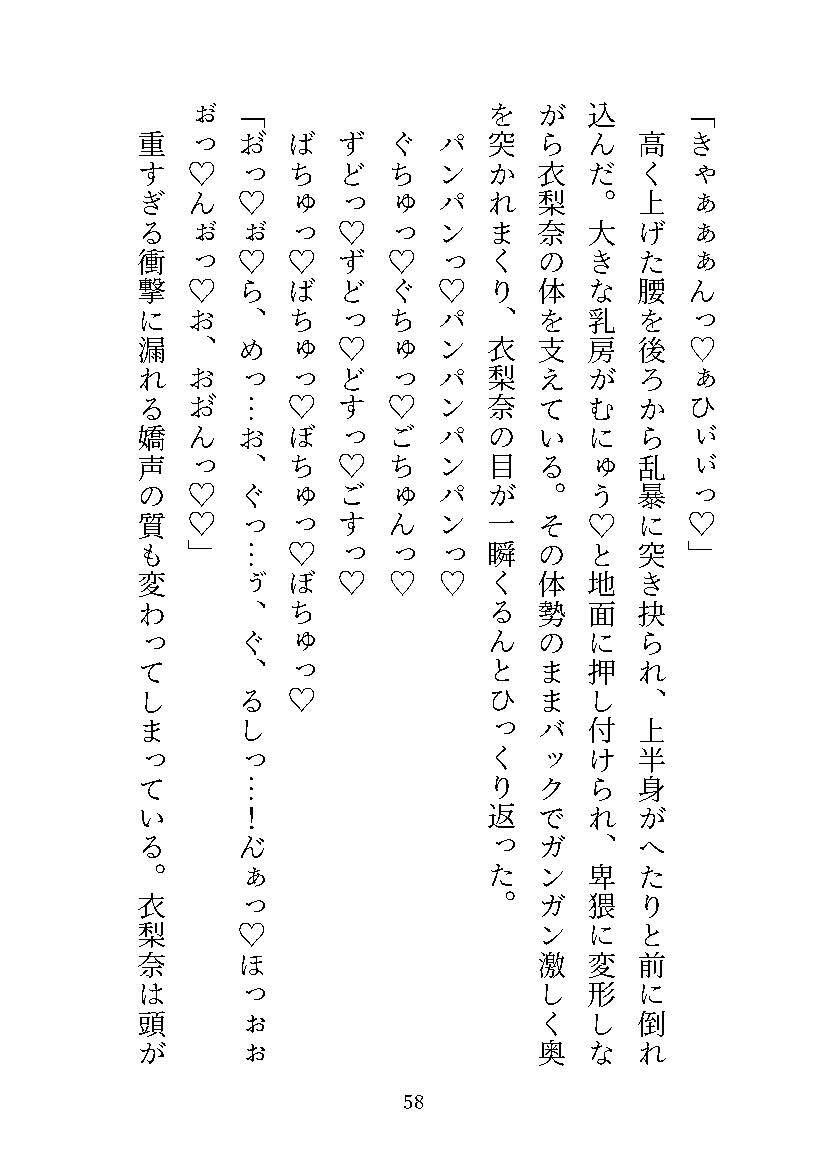 「きゃぁぁぁんっ♡ぁひぃ゙ぃ゙っ♡」
高く上げた腰を後ろから乱暴に突き抉られ、上半身がへたりと前に倒れ
込んだ。大きな乳房がむにゅう♡と地面に押し付けられ、卑猥に変形しな
がら衣梨奈の体を支えている。その体勢のままバックでガンガン激しく奥
を突かれまくり、衣梨奈の目が一瞬くるんとひっくり返った。
パンパンっ♡パンパンパンパンっ♡
ぐちゅっ♡ぐちゅっ♡ごちゅんっ♡
ずどっ♡ずどっ♡どすっ♡ごすっ♡
ばちゅっ♡ばちゅっ♡ぼちゅっ♡ぼちゅっ♡
「お゙っ♡ぉ゙♡ら、めっ…お、ぐっ…ゔ、ぐ、るしっ…！ん゙ぁっ♡ほっぉぉ
ぉ゙っ♡んぉ゙っ♡お、おお゙んっ♡♡」
重すぎる衝撃に漏れる嬌声の質も変わってしまっている。衣梨奈は頭が
58